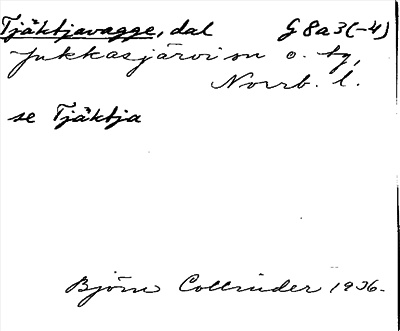 Tjäktjavagge, dal G8a3(-4)
Jukkasjärvi sn o. tg,
Norrb. l.
se Tjäktja
Björn Collinder 1936.